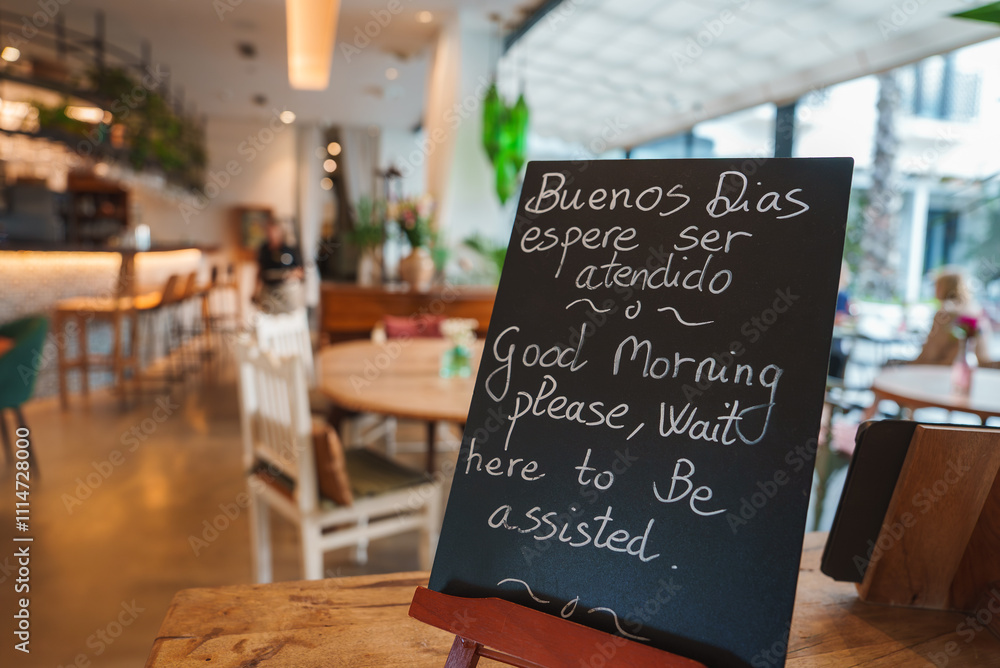 Buenos Dias
espere ser
atendido
~ o ~
Good Morning
please, Wait
here to Be
assisted.
~ o ~
Adobe Stock | #1114728000